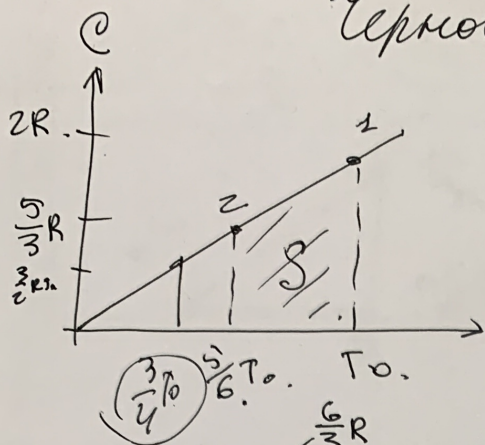 Черно
C
2R
1
5/3 R
2
S
3/2 R
3/4 T₀
5/6 T₀.
T₀.
6/3 R